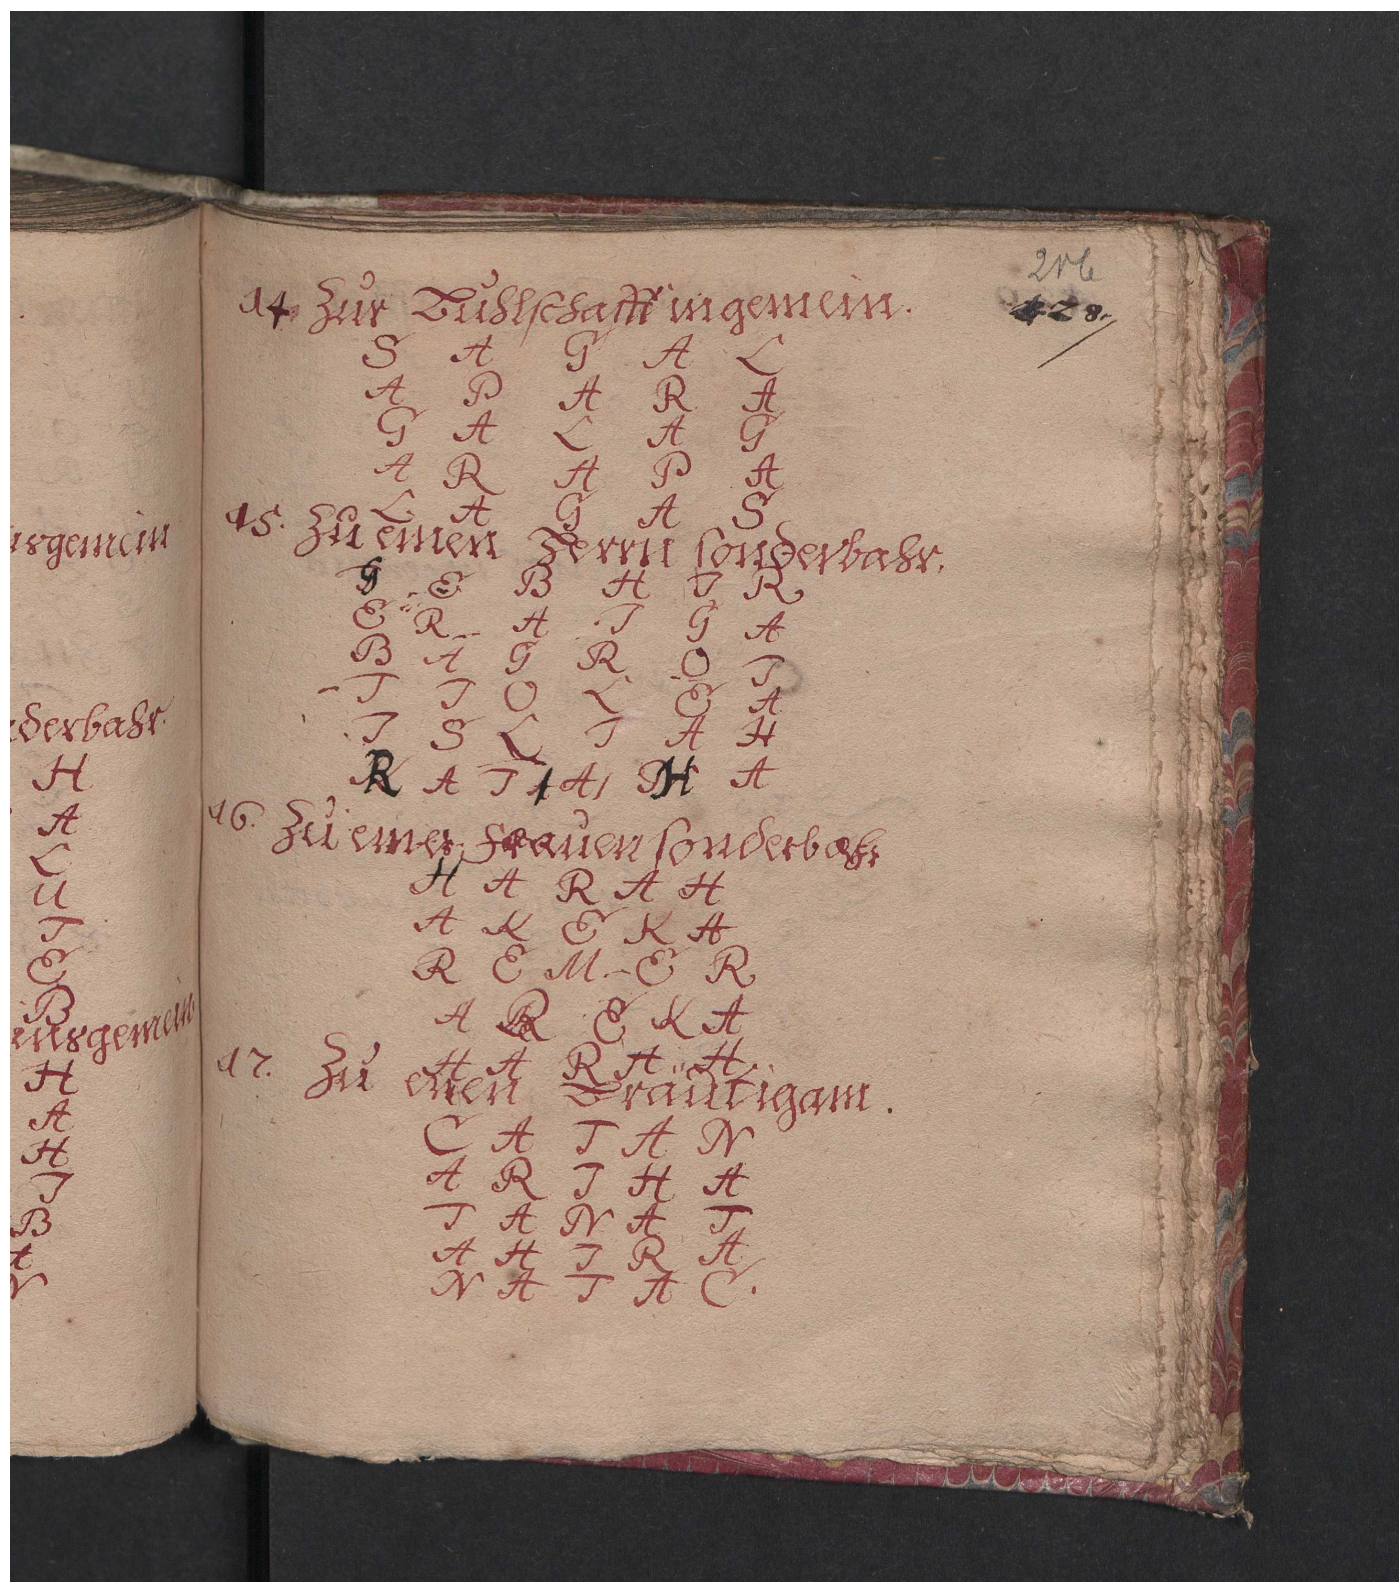 nsgemein
nderbahr.
H
A
L
U
T
E
B
insgemein
H
A
H
T
B
A
N
206
428.
14. Zur Buhlschafft ingemein.
S A G A L
A P A R A
G A L A G
A R A P A
L A G A S
15. Zu einen Herrn sonderbahr.
G E B H I R
E R A I G A
B A G R O T
T I O L E A
I S L I A H
R A T 1 A, H A
16. Zu einer Frauen sonderbahr
H A R A H
A K E K A
R E M E R
A R E K A
H A R A H
17. Zu einen Bräutigam.
C A T A N
A R I H A
T A N A T
A H I R A
N A T A C.